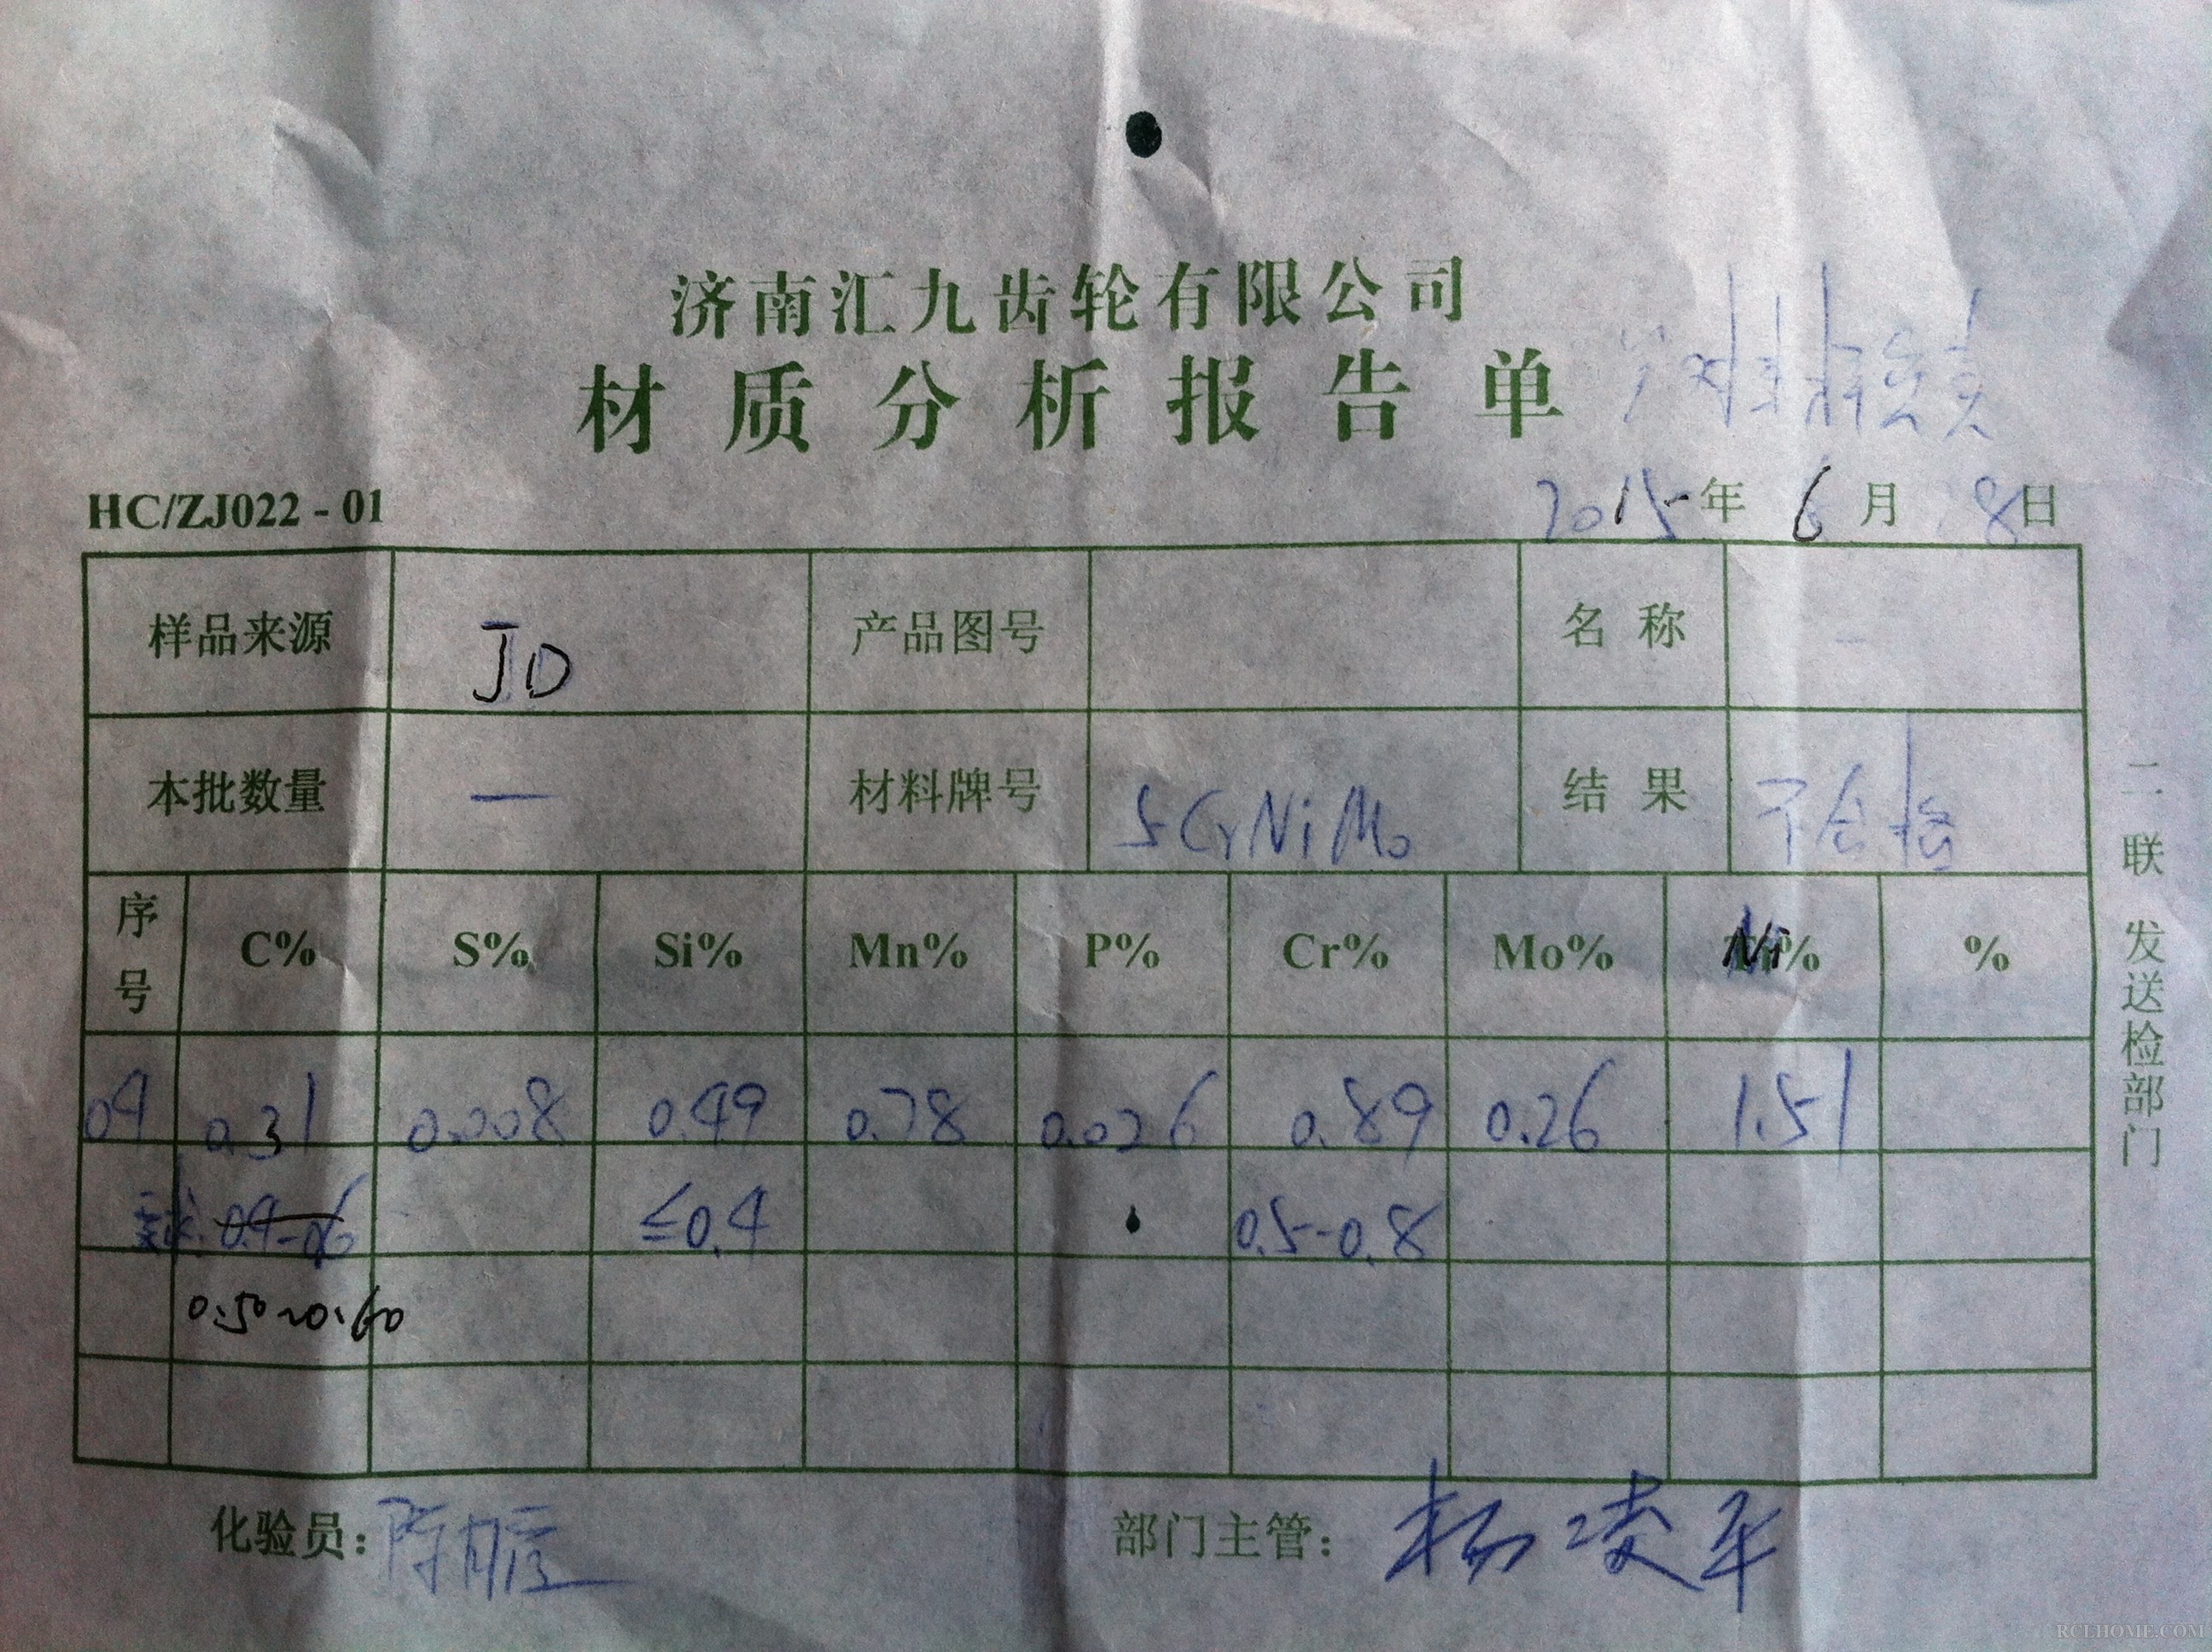 济南汇九齿轮有限公司
材质分析报告单
只对来样负责
HC/ZJ022-01
2015年6月8日
样品来源 JD 产品图号 名称 -
本批数量 — 材料牌号 5CrNiMo 结果 不合格
序号 C% S% Si% Mn% P% Cr% Mo% Ni% %
04 0.31 0.008 0.49 0.78 0.026 0.89 0.26 1.51
要求: 0.4-0.6 ≤0.4 0.5-0.8
0.50~0.60
化验员: 陈 部门主管: 杨凌军
二联 发送检部门
RCLHOME.COM